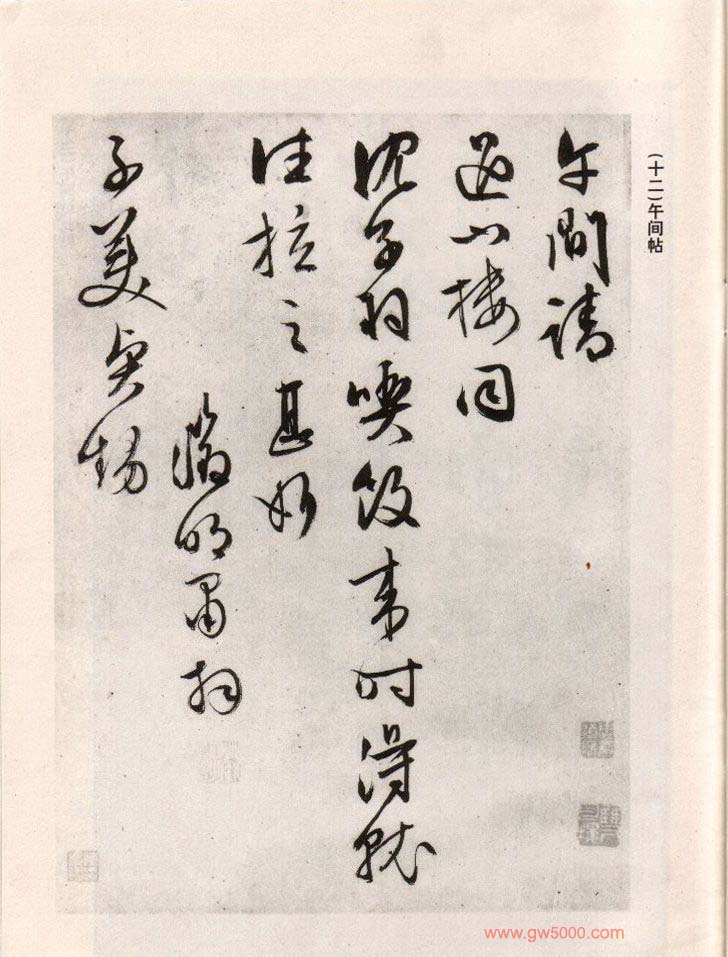 (十二)午间帖
午間請
過小樓同
沈子羽喫飯來時得就
往拉之甚好
徵明肅拜
子美賢甥
www.gw5000.com